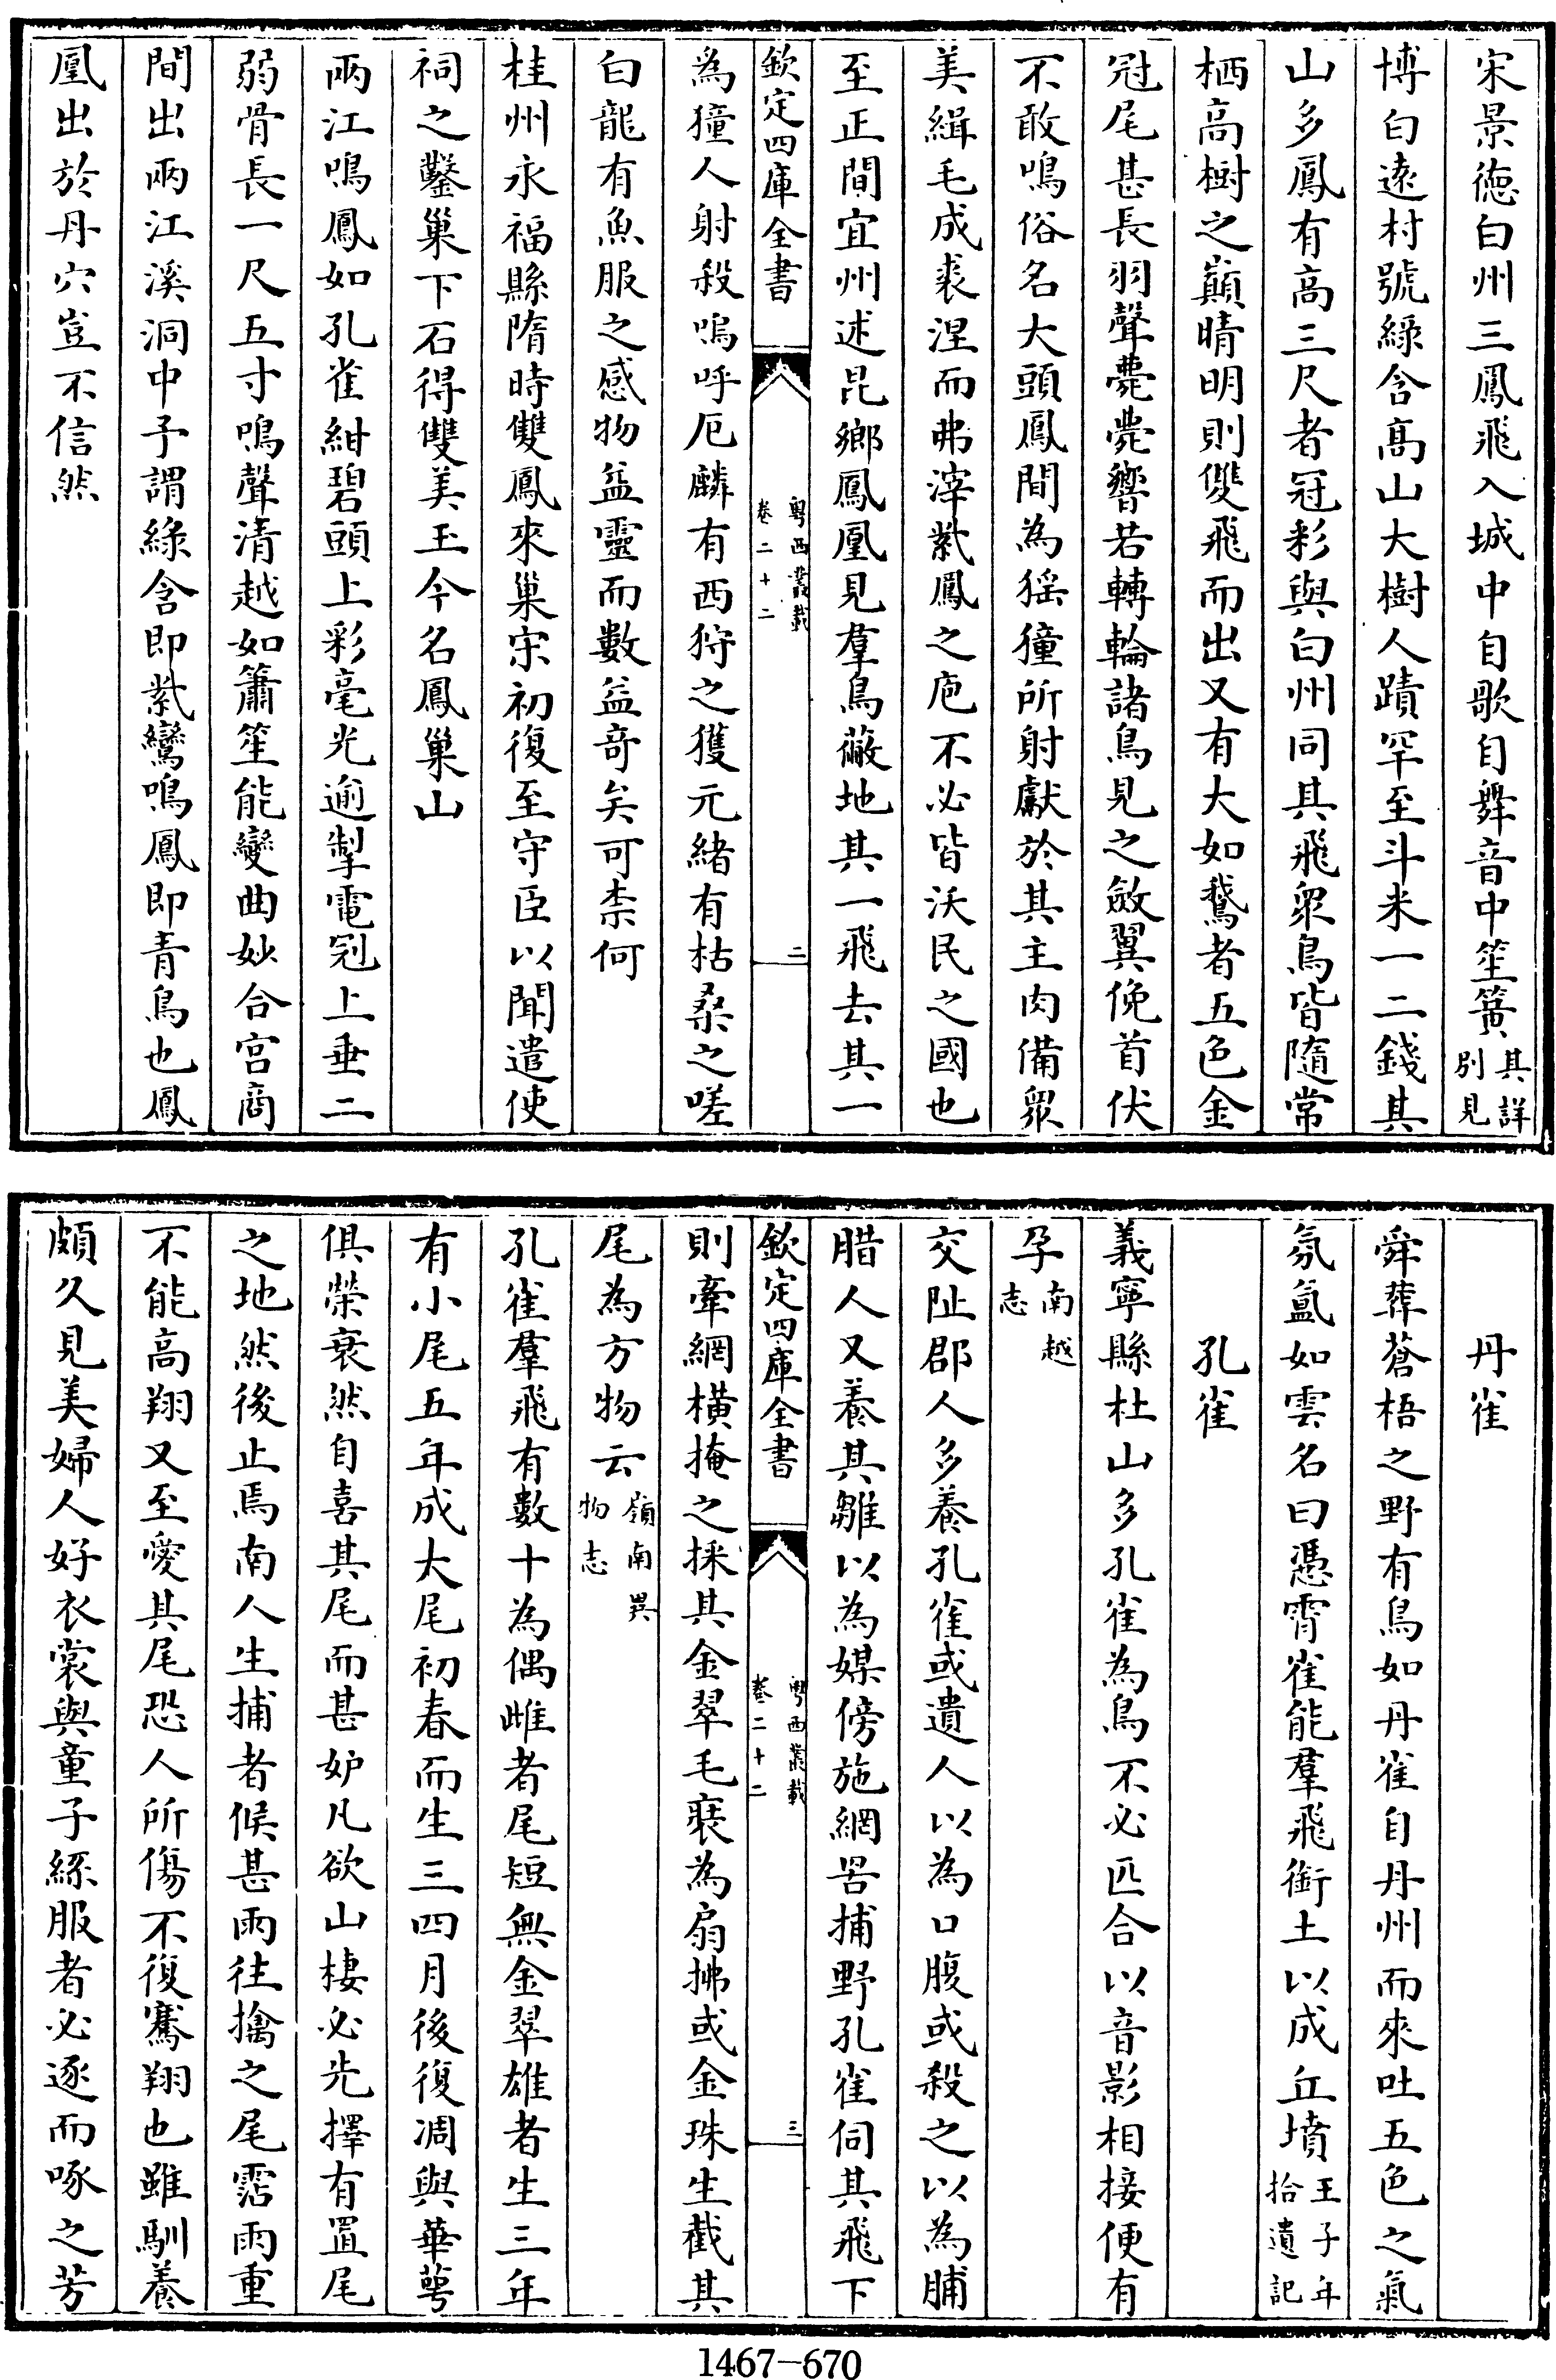 宋景徳白州三鳳飛入城中自歌自舞音中笙簧其詳別見
博白逺村號緑含高山大樹人蹟罕至斗米一二錢其
山多鳳有高三尺者冠彩與白州同其飛衆鳥皆隨常
栖高樹之巔晴明則雙飛而出又有大如鵞者五色金
冠尾甚長羽聲甍甍響若轉輪諸鳥見之斂翼俛首伏
不敢鳴俗名大頭鳳間為猺獞所射獻於其主肉備衆
美緝毛成裘涅而弗滓紫鳳之庖不必皆沃民之國也
至正間宜州述昆鄉鳳凰見羣鳥蔽地其一飛去其一
欽定四庫全書
粤西叢載
卷二十二
二
為獞人射殺嗚呼厄麟有西狩之獲元緒有枯桑之嗟
白龍有魚服之感物益靈而數益竒矣可柰何
桂州永福縣隋時雙鳳來巢宋初復至守臣以聞遣使
祠之鑿巢下石得雙美玉今名鳳巢山
兩江鳴鳳如孔雀紺碧頭上彩毫光逾掣電冠上垂二
弱骨長一尺五寸鳴聲清越如簫笙能變曲妙合宫商
間出兩江溪洞中予謂緑含即紫鸞鳴鳳即青鳥也鳳
凰出於丹穴豈不信然
丹雀
舜葬蒼梧之野有鳥如丹雀自丹州而來吐五色之氣
氛氲如雲名曰憑霄雀能羣飛銜土以成丘墳王子年拾遺記
孔雀
義寧縣杜山多孔雀為鳥不必匹合以音影相接便有
孕南越志
交阯郡人多養孔雀或遺人以為口腹或殺之以為脯
腊人又養其雛以為媒傍施網罟捕野孔雀伺其飛下
欽定四庫全書
粤西叢載
卷二十二
三
則牽網横掩之採其金翠毛裒為扇拂或金珠生截其
尾為方物云嶺南異物志
孔雀羣飛有數十為偶雌者尾短無金翠雄者生三年
有小尾五年成大尾初春而生三四月後復凋與華萼
俱榮衰然自喜其尾而甚妒凡欲山棲必先擇有置尾
之地然後止焉南人生捕者候甚雨往擒之尾霑雨重
不能高翔又至愛其尾恐人所傷不復騫翔也雖馴養
頗久見美婦人好衣裳與童子絲服者必逐而啄之芳
1467-670